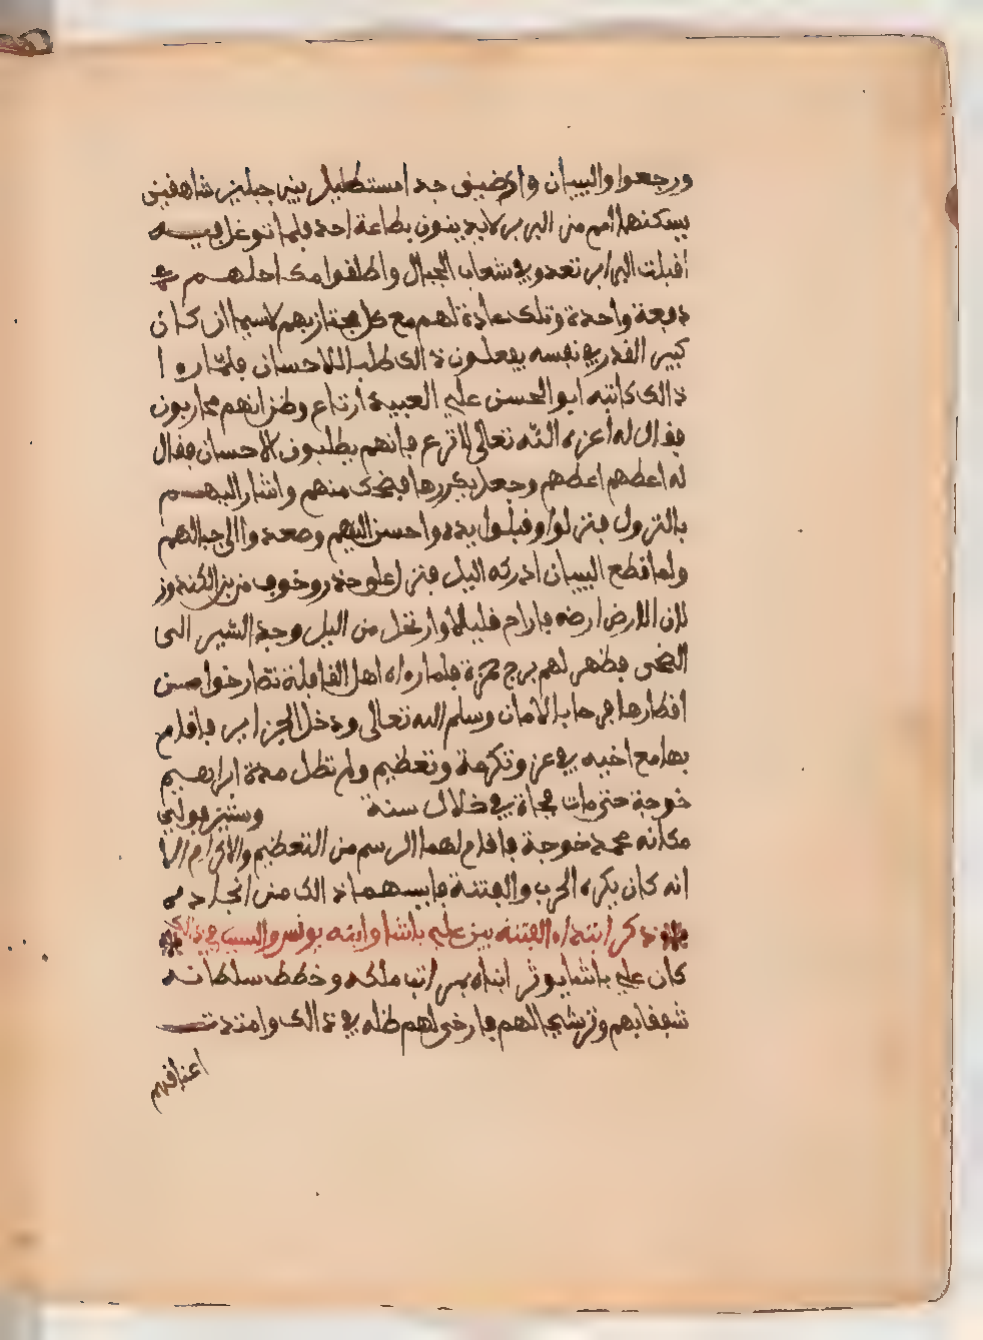 ورجعوا والبيبان واد ضيق جدا مستطيل بين جبلين شاهقين
يسكنها أمم من البربر لا يدينون بطاعة احد فلما توغل فيه
اقبلت البرابر تعدو في شعاب الجبال واطلقوا مكاحلهم
دفعة واحدة وتلك عادة لهم مع كل مجتاز بهم لاسيما ان كان
كبير القدر في نفسه يفعلون ذالك طلبا للاحسان فلما روا
ذالك كاتبه ابو الحسن علي العبيدي ارتاع وظن انهم محاربون
فقال له اعزه الله تعالى لا ترع فانهم يطلبون الاحسان فقال
له اعطهم اعطهم وجعل يكررها فضحك منهم واشار اليهم
بالنزول فنزلوا وقبلوا يده واحسن اليهم وصعدوا الى جبالهم
ولما قطع البيبان ادركه اليل فنزل على حذر وخوف من بن الكندوز
لان الارض ارضه فارام قليلا وارتحل من اليل وجد السير الى
الضحى فظهر لهم برج حمزة فلما راه اهل القافلة تصارخوا من
اقطارها فرحا بالامان وسلم الله تعالى ودخل الجزاير فاقام
بها مع اخيه في عز وتكرمة وتعظيم ولم تطل مدة ابراهيم
خوجة حتى مات فجاة في خلال سنة وستين فولي
مكانه محمد خوجة فاقام لهما الرسم من التعظيم والاكرام الا
انه كان يكره الحرب والفتنة فايسهما ذالك من انجاد
ذكر ابتداء الفتنة بين علي باشا وابنه يونس والسبب في ذالك
كان علي باشا يوثر ابناه بمراتب ملكه وخطط سلطانه
شغفا بهم وترشيحا لهم فارخى لهم ظله في ذالك وامتدت
اعناقهم